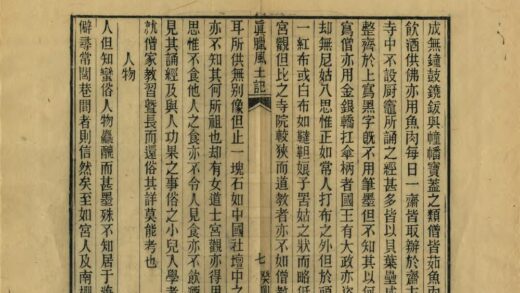 成無鐘鼓鐃鈸與幢幡寶蓋之類僧皆茹魚肉
飲酒供佛亦用魚肉每日一齋皆取辦於齋主
寺中不設厨竈所誦之經甚多皆以貝葉疊成
整齊於上寫黑字旣不用筆墨但不知其以何
爲僧亦用金銀轎扛傘柄者國王有大政亦
却無尼姑八思惟正如常人打布之外但於頭
一紅布或白布如韃靼娘子罟姑之狀而略低
宮觀但比之寺院較狹而道教者亦不如僧教
眞臘風土記
七
耳所供無別像但止一塊石如中國社壇中之
亦不知其何所祖也却有女道士宮觀亦得用
思惟不食他人之食亦不令人見食亦不飲酒
見其誦經及與人功果之事俗之小兒入學者
就僧家教習曁長而還俗其詳莫能考也
人物
人但知蠻俗人物麤醜而甚黑殊不知居于海
僻尋常閭巷間者則信然矣至如宮人及南棚